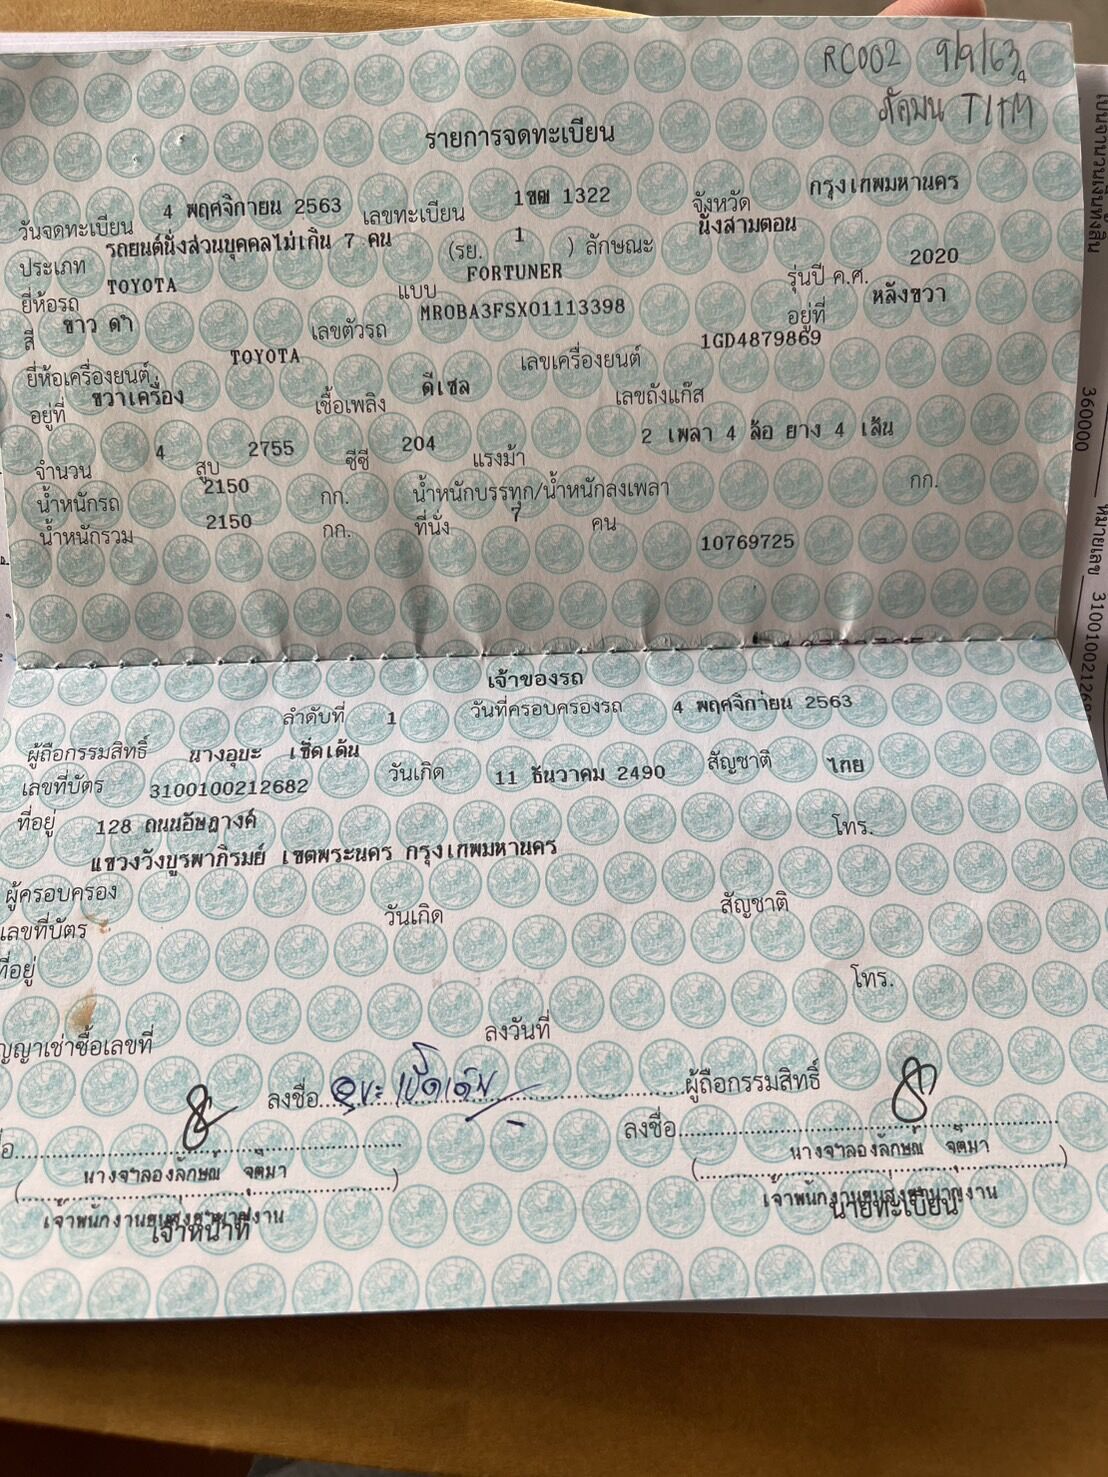 RC002 9/9/63
4
ภัคมน TLTM
รายการจดทะเบียน
วันจดทะเบียน 4 พฤศจิกายน 2563 เลขทะเบียน 1ขฒ 1322 จังหวัด กรุงเทพมหานคร
ประเภท รถยนต์นั่งส่วนบุคคลไม่เกิน 7 คน (รย. 1 ) ลักษณะ นั่งสามตอน
ยี่ห้อรถ TOYOTA แบบ FORTUNER รุ่นปี ค.ศ. 2020
สี ขาว ดำ เลขตัวรถ MR0BA3FSX01113398 อยู่ที่ หลังขวา
ยี่ห้อเครื่องยนต์ TOYOTA เลขเครื่องยนต์ 1GD4879869
อยู่ที่ ขวาเครื่อง เชื้อเพลิง ดีเซล เลขถังแก๊ส
จำนวน 4 สูบ 2755 ซีซี 204 แรงม้า 2 เพลา 4 ล้อ ยาง 4 เส้น
น้ำหนักรถ 2150 กก. น้ำหนักบรรทุก/น้ำหนักลงเพลา กก.
น้ำหนักรวม 2150 กก. ที่นั่ง 7 คน
10769725
เจ้าของรถ
ลำดับที่ 1 วันที่ครอบครองรถ 4 พฤศจิกายน 2563
ผู้ถือกรรมสิทธิ์ นางอุบะ เชิดเด้น
เลขที่บัตร 3100100212682 วันเกิด 11 ธันวาคม 2490 สัญชาติ ไทย
ที่อยู่ 128 ถนนอัษฎางค์ โทร.
แขวงวังบูรพาภิรมย์ เขตพระนคร กรุงเทพมหานคร
ผู้ครอบครอง
เลขที่บัตร วันเกิด สัญชาติ
ที่อยู่ โทร.
ญญาเช่าซื้อเลขที่ ลงวันที่
ลงชื่อ อุบะ เชิดเด้น ผู้ถือกรรมสิทธิ์
ลงชื่อ
(นางจำลองลักษณ์ จุติมา) (นางจำลองลักษณ์ จุติมา)
เจ้าพนักงานขนส่งชำนาญงาน เจ้าพนักงานขนส่งชำนาญงาน
เจ้าหน้าที่ นายทะเบียน
เป็นจำนวนเงินทั้งสิ้น
360000 หมายเลข